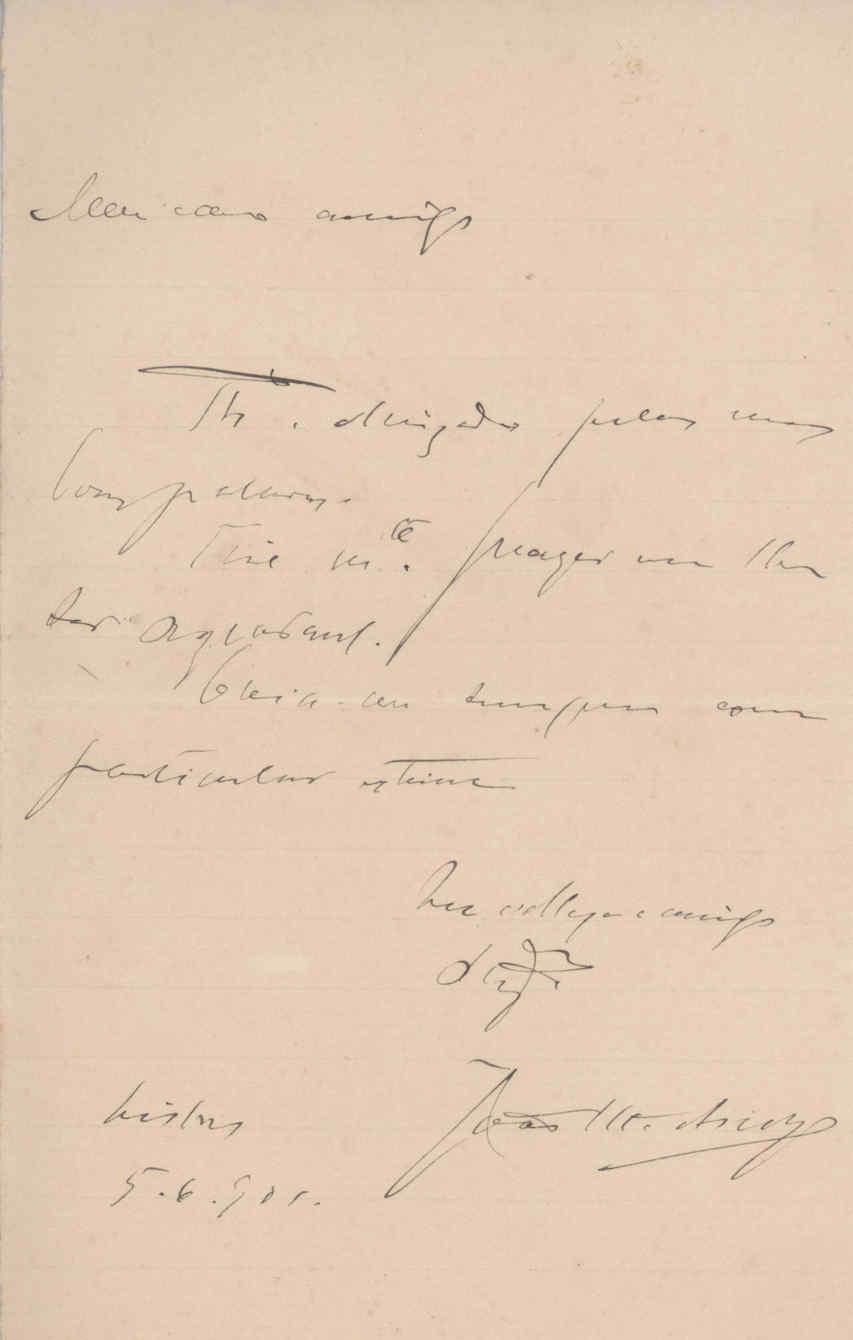 Meu caro amigo
M.to obrigado pelas suas
boas palavras.
Tive m.to prazer em lhe
ser agradavel.
Creia-me sempre com
particular estima
seu collega e amigo
obg.do
Lisboa
5.6.901.